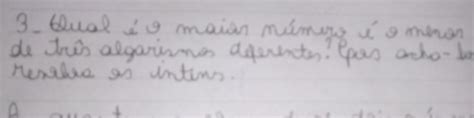 3- Qual é o maior número é o menor
de três algarismos diferentes? (para acha-los
Resolva os intens.